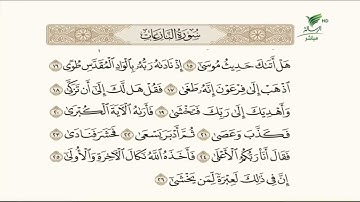 سُورَةُ النَّازِعَاتِ
HD
الرسالة
مباشر
هَلْ أَتَىٰكَ حَدِيثُ مُوسَىٰٓ ١٥ إِذْ نَادَىٰهُ رَبُّهُۥ بِٱلْوَادِ ٱلْمُقَدَّسِ طُوًى ١٦
ٱذْهَبْ إِلَىٰ فِرْعَوْنَ إِنَّهُۥ طَغَىٰ ١٧ فَقُلْ هَل لَّكَ إِلَىٰٓ أَن تَزَكَّىٰ ١٨
وَأَهْدِيَكَ إِلَىٰ رَبِّكَ فَتَخْشَىٰ ١٩ فَأَرَىٰهُ ٱلْءَايَةَ ٱلْكُبْرَىٰ ٢٠
فَكَذَّبَ وَعَصَىٰ ٢١ ثُمَّ أَدْبَرَ يَسْعَىٰ ٢٢ فَحَشَرَ فَنَادَىٰ ٢٣
فَقَالَ أَنَا۠ رَبُّكُمُ ٱلْأَعْلَىٰ ٢٤ فَأَخَذَهُ ٱللَّهُ نَكَالَ ٱلْءَاخِرَةِ وَٱلْأُولَىٰٓ ٢٥
إِنَّ فِى ذَٰلِكَ لَعِبْرَةً لِّمَن يَخْشَىٰٓ ٢٦